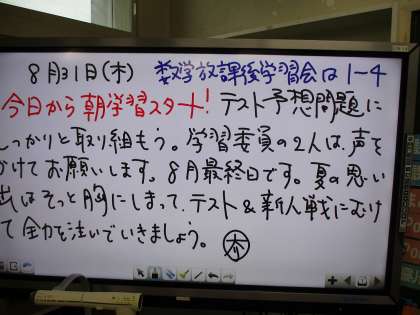 8月31日(木) 数学放課後学習会は1-4
今日から朝学習スタート! テスト予想問題に
しっかりと取り組もう。学習委員の2人は、声を
かけてお願いします。8月最終日です。夏の思い
出はそっと胸にしまって、テスト&新人戦にむけ
て全力を注いでいきましょう。